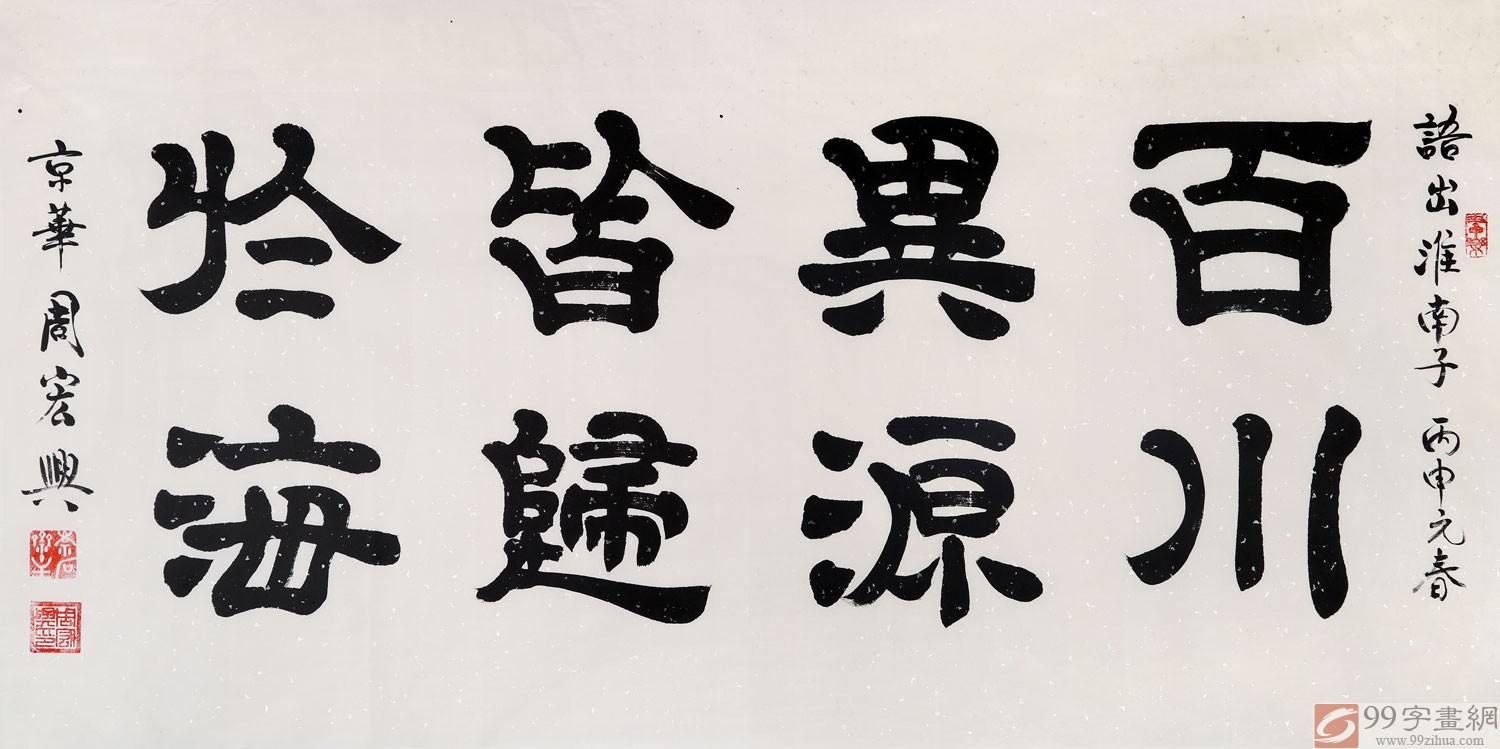 語出淮南子 丙申元春
百川
異源
皆歸
於海
京華周宏興
99字畫網
www.99zihua.com